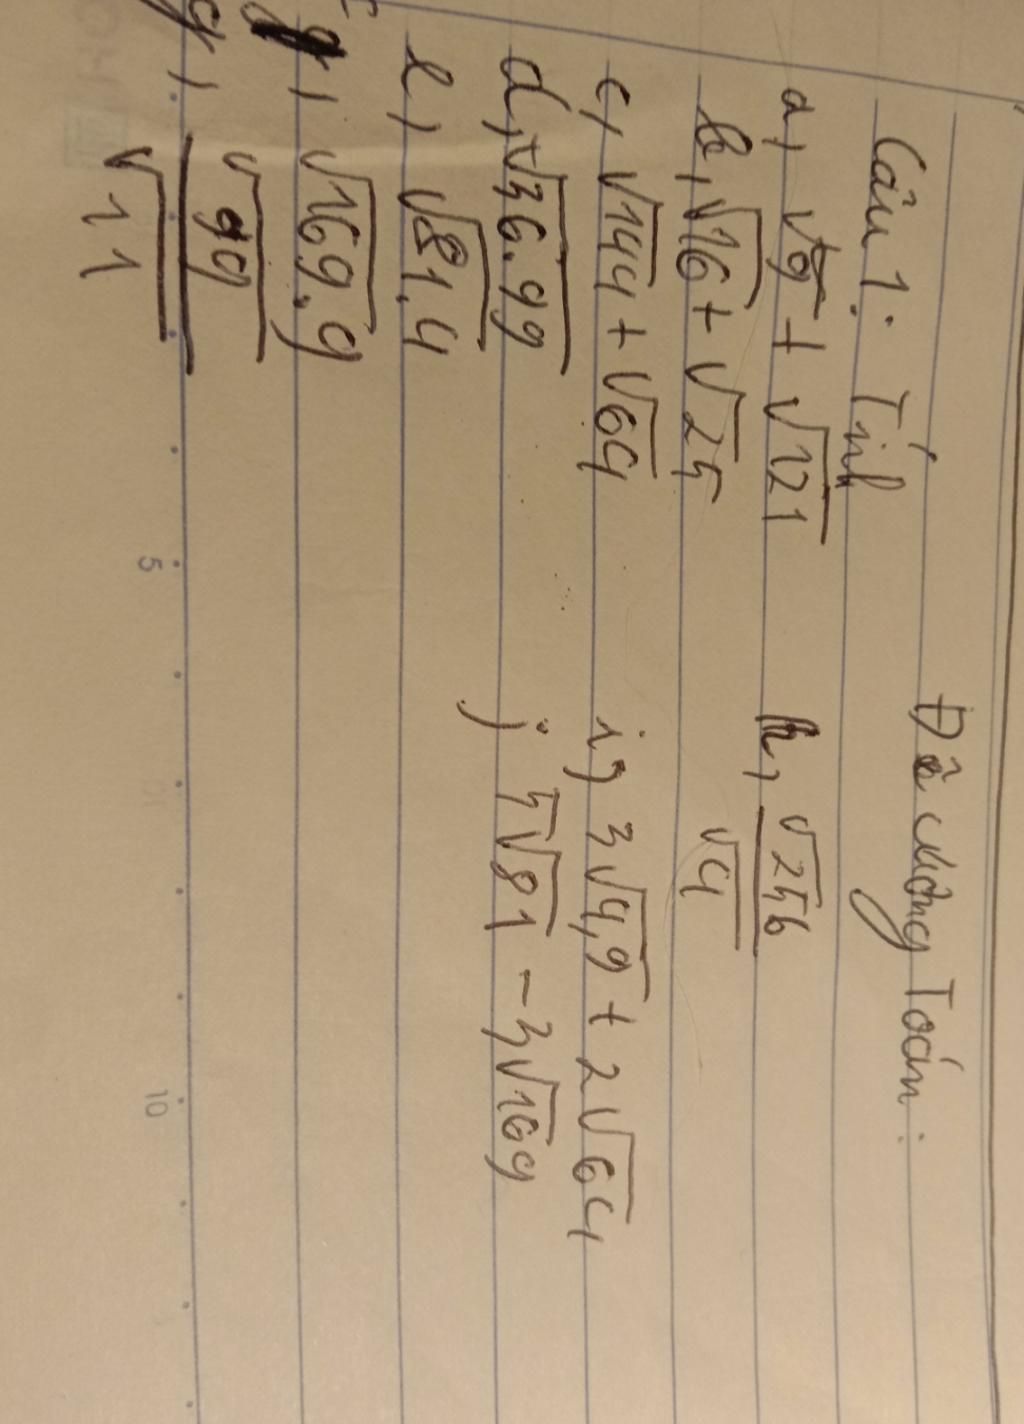 Đề cương Toán:
Câu 1: Tính
a, √9 + √121
b, √16 + √25
c, √144 + √64
d, √36.99
e, √81.4
g, √169.9
g, √99 / √11
h, √256 / √4
i, 3√4,9 + 2√64
j, 5√81 - 3√169
5
10